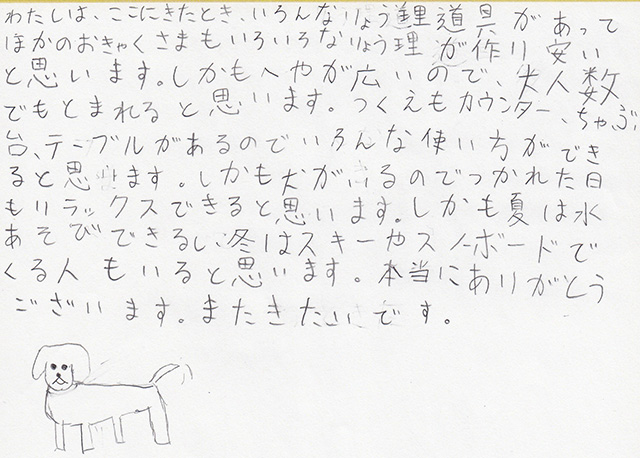 わたしは、ここにきたとき、いろんなりょう理道具があって
ほかのおきゃくさまもいろいろなりょう理が作り安い
と思います。しかもへやが広いので、大人数
でもとまれると思います。つくえもカウンター、ちゃぶ
台、テーブルがあるのでいろんな使い方ができ
ると思います。しかも犬がいるのでつかれた日
もリラックスできると思います。しかも夏は水
あそびできるし、冬はスキーやスノーボードで
くる人もいると思います。本当にありがとう
ございます。またきたいです。